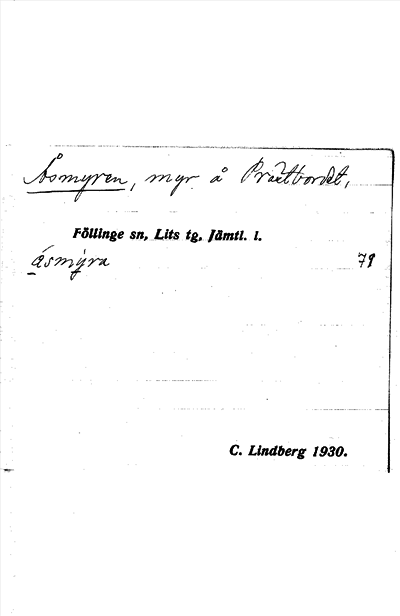 Åsmyren, myr å Prästbordet,
Föllinge sn, Lits tg, Jämtl. l.
åsmýra 79
C. Lindberg 1930.